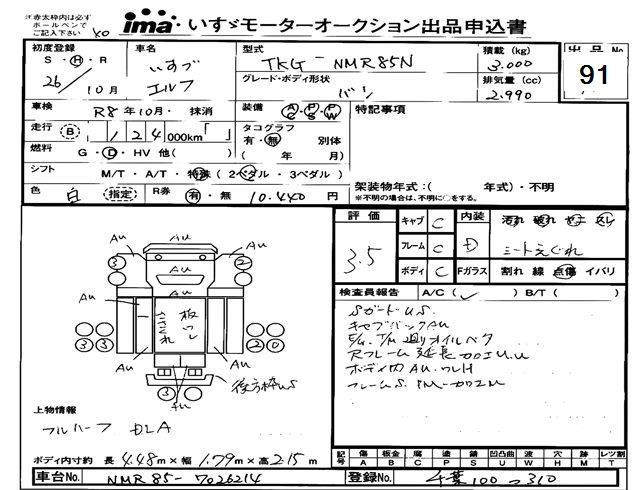 ※赤太枠内は必ず
ボールペンで
ご記入下さい
ima いすゞモーターオークション出品申込書
初度登録 車名 型式 積載 (kg) 出品No.
S・H・R いすゞ TKG-NMR85N 3.000 91
26/10月 エルフ グレード・ボディ形状 排気量 (cc)
バン 2.990
車検 R8年10月・抹消 装備 AC・PS・PW 特記事項
走行 B 124000km「 」 タコグラフ
有・無 別体
燃料 G・D・HV 他( ) ( 年 月)
シフト M/T・A/T・特殊 (2ペダル・3ペダル) 架装物年式:( 年式)・不明
※不明の場合は、不明に○をする。
色 白 指定 R券 有・無 10.440円
評価 3.5
キャブ C 内装 D 汚れ 破れ ヤニ スレ
フレーム C シートえぐれ
ボディ C Fガラス 割れ 線 点傷 イバリ
検査員報告 A/C( ✓ ) B/T( )
Sガードu.S.
キャブバックAu
E/G.T/M 廻りオイルベタ
Rフレーム延長加工u.u
ボディ内Au.ワレH
フレームS.
Au
Au Au
3 2
Au Au
板ワレ
3 3 2 0
Au Au
後方枠us
3
Au
上物情報
フルハーフ DLA
ボディ内寸約 長4.48m×幅1.79m×高2.15m
記号 傷 板金 腐 塗 錆 凹 凸凹曲 波 穴 跡 レツ割
A B C P S U W H M T
車台No. NMR85-7026214 登録No. 千葉100